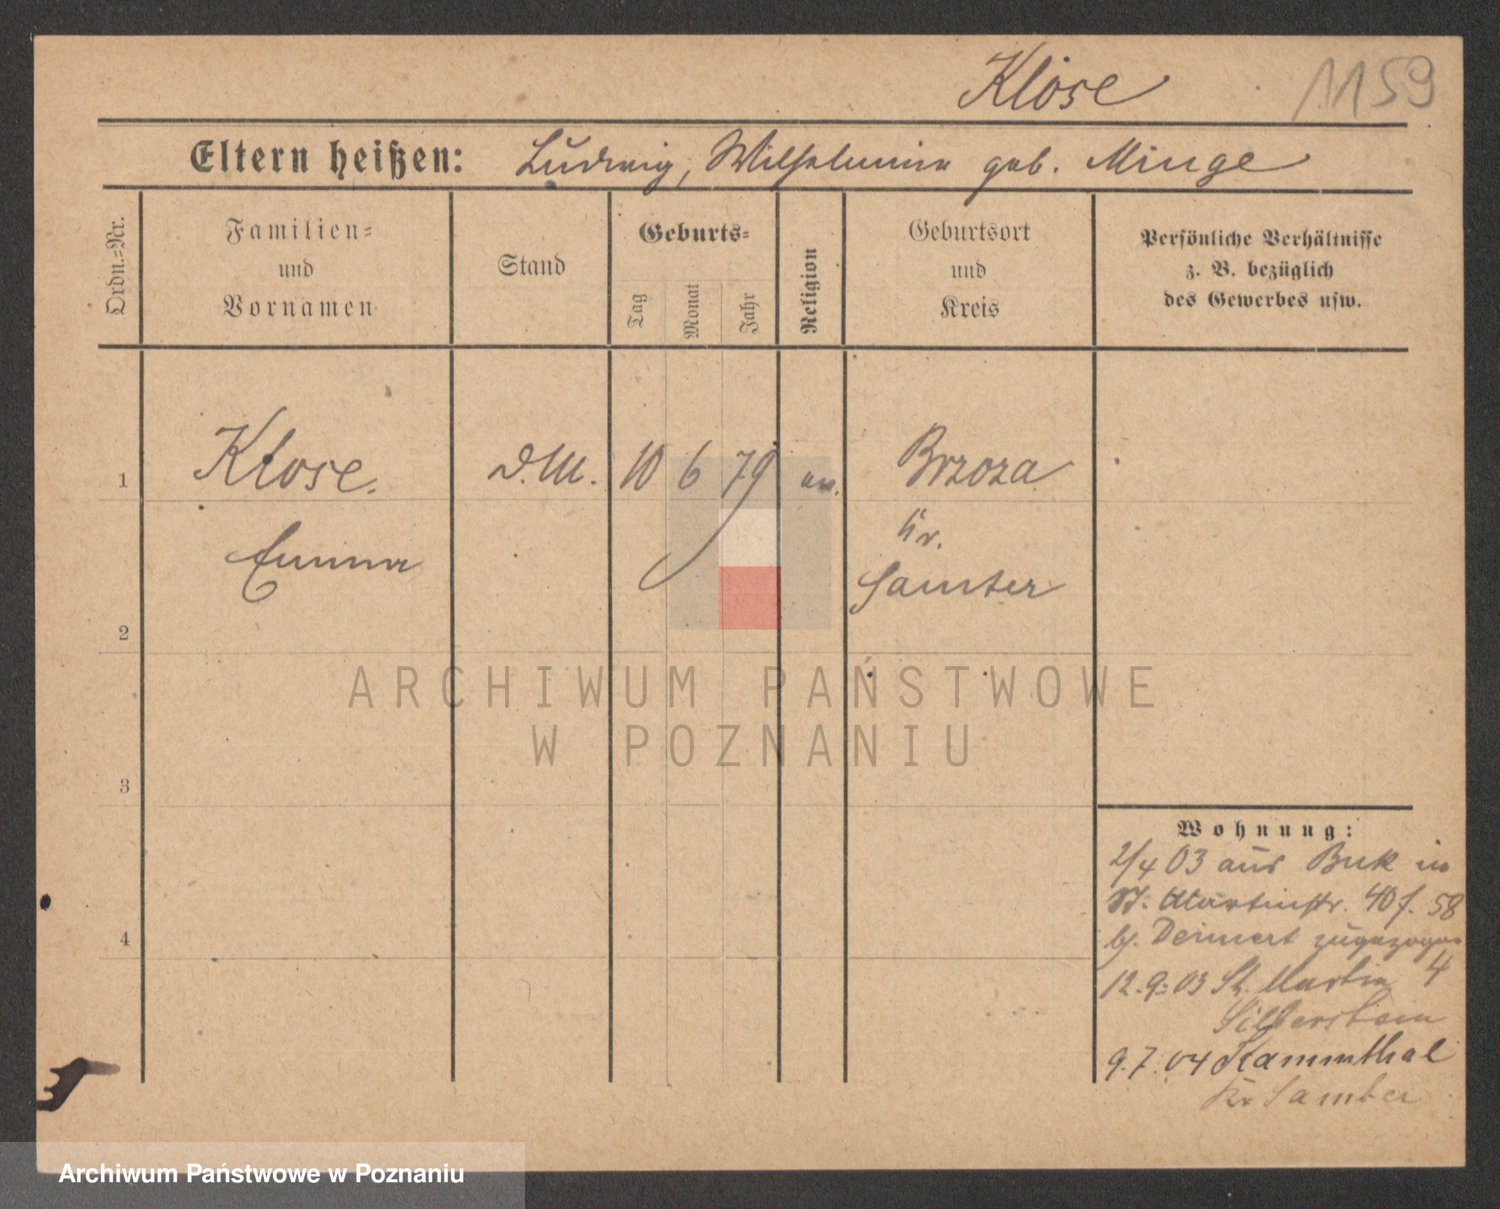 Klose 1159
Eltern heißen: Ludwig, Wilhelmine geb. Minge
Ordn.-Nr.
Familien-
und
Vornamen
Stand
Geburts-
Tag
Monat
Jahr
Religion
Geburtsort
und
Kreis
Persönliche Verhältnisse
z. B. bezüglich
des Gewerbes usw.
1 Klose. D.M. 10 6 79 ev. Brzoza
Emma Kr.
Samter
2
3
4
Wohnung:
2/4 03 aus Buk in
St. Martinstr. 40 f. 58
b. zugezogen
12.9.03 St. Martin 4
Silberstein
9.7.04 Kammthal
Kr Samter
ARCHIWUM PAŃSTWOWE
W POZNANIU
Archiwum Państwowe w Poznaniu